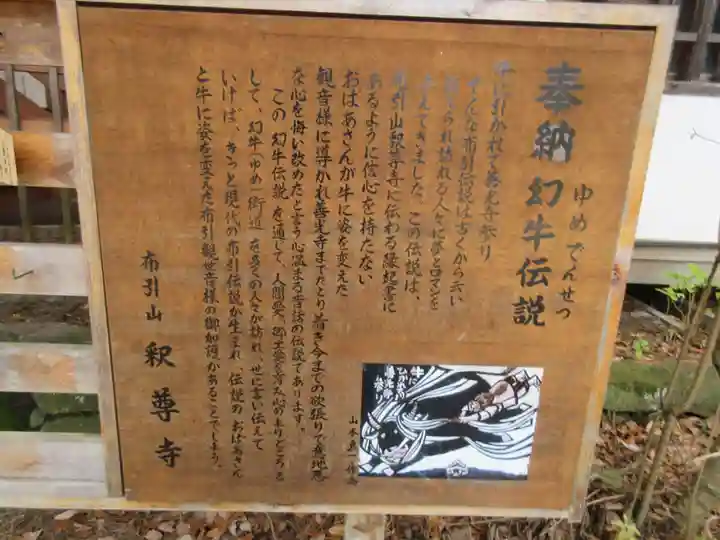 奉納 幻牛伝説
ゆめでんせつ
牛に引かれて善光寺参り
そんな布引伝説は古くから云い
伝えられ訪れる人々に夢とロマンを
与えてきました。この伝説は、
布引山釈尊寺に伝わる縁起書に
あるように信心を持たない
おばあさんが牛に姿を変えた
観音様に導かれ善光寺までたどり着き今までの欲張りで意地悪
な心を悔い改めたと言う心温まる昔話の伝説であります。
この幻牛伝説を通して、人間愛、郷土愛を育む心のよりどころと
して、幻牛(ゆめ)街道を多くの人々が訪れ、世に言い伝えて
いけば、きっと現代の布引伝説が生まれ、伝説のおばあさん
と牛に姿を変えた布引観世音様の御加護があることでしょう。
布引山 釈尊寺
牛に
ひかれて
善光寺